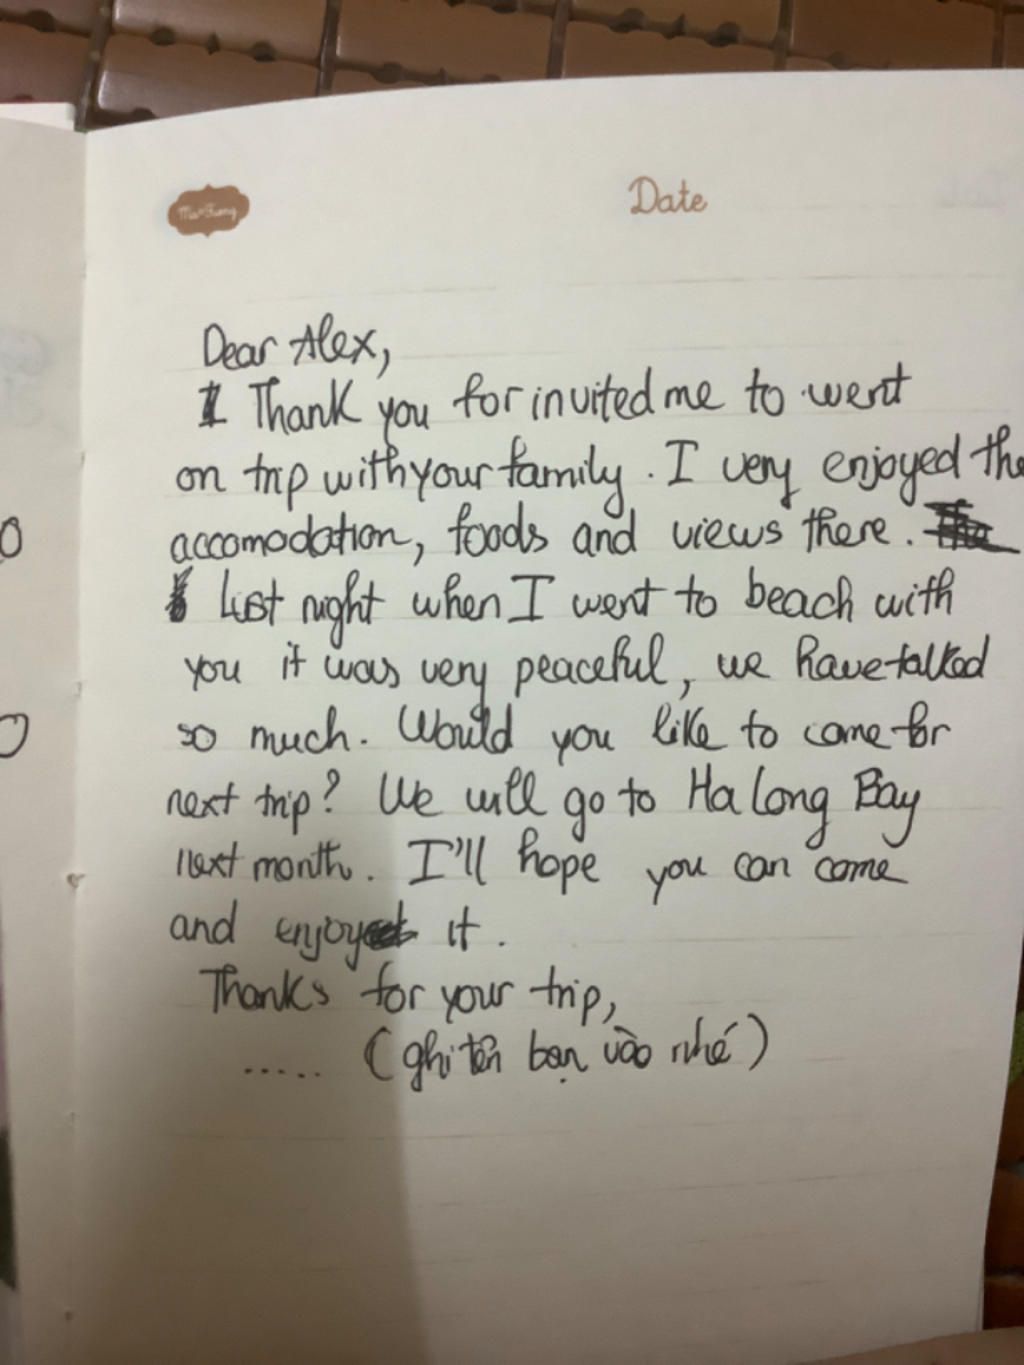 Date
Dear Alex,
I Thank you for invited me to went
on trip with your family. I very enjoyed the
accomodation, foods and views there.
Last night when I went to beach with
you it was very peaceful, we have talked
so much. Would you like to come for
next trip? We will go to Ha Long Bay
next month. I'll hope you can come
and enjoy it.
Thanks for your trip,
..... (ghi tên bạn vào nhé)